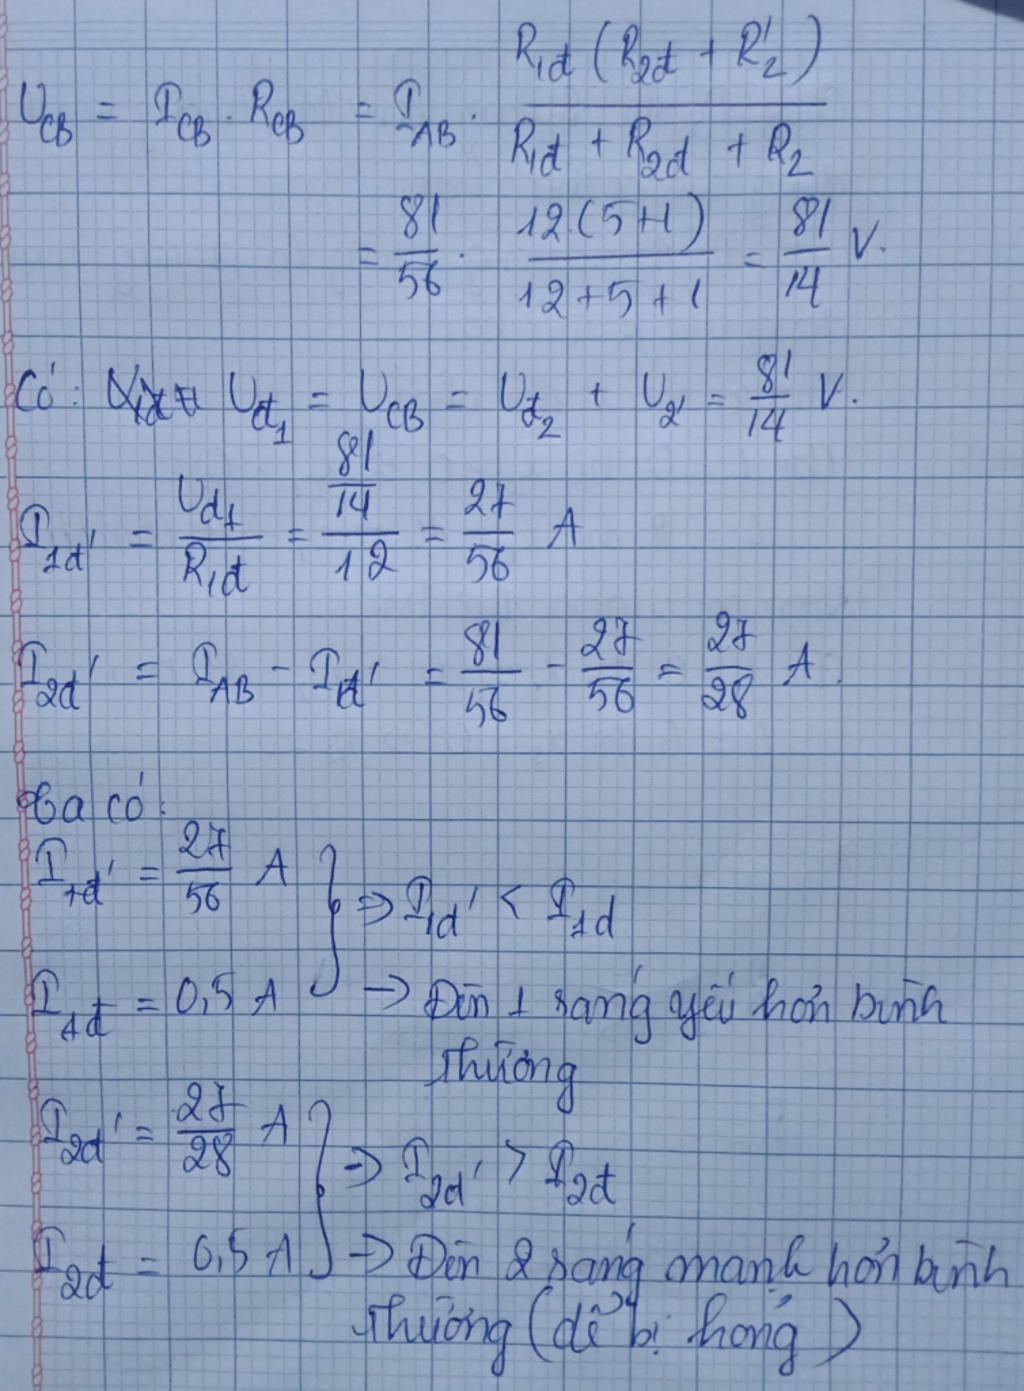 U_CB = I_CB . R_CB = I_AB . R_1đ (R_2đ + R'_2) / R_1đ + R_2đ + R_2
= 81/56 . 12.(5+1) / 12+5+1 = 81/14 V.
Có: U_đ1 = U_CB = U_đ2 + U_2' = 81/14 V.
I_1đ' = U_đ1 / R_1đ = 81/14 / 12 = 27/56 A
I_2đ' = I_AB - I_1đ' = 81/56 - 27/56 = 27/28 A.
Ta có:
I_1đ' = 27/56 A } => I_1đ' < I_1đ
I_1đ = 0,5 A -> Đèn 1 sáng yếu hơn bình
thường
I_2đ' = 27/28 A } => I_2đ' > I_2đ
I_2đ = 0,5 A -> Đèn 2 sáng mạnh hơn bình
thường (dễ bị hỏng)